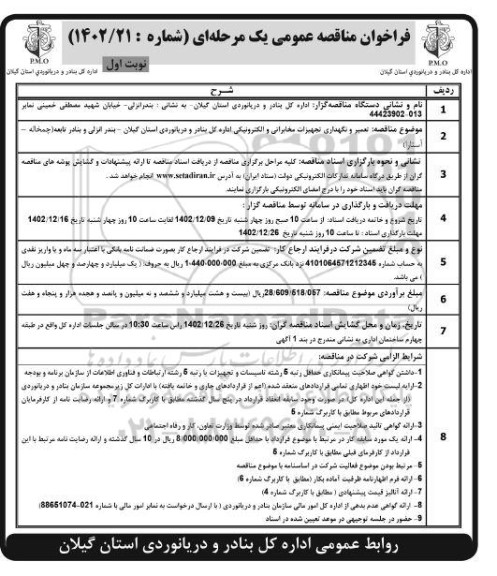 فراخوان مناقصه عمومی یک مرحله‌ای (شماره : ۱۴۰۲/۲۱)
نوبت اول
P.M.O
اداره کل بنادر و دریانوردی استان گیلان
P.M.O
اداره کل بنادر و دریانوردی استان گیلان
ردیف شرح
1 نام و نشانی دستگاه مناقصه‌گزار: اداره کل بنادر و دریانوردی استان گیلان – به نشانی : بندرانزلی- خیابان شهید مصطفی خمینی نمابر
44423902-013
2 موضوع مناقصه: تعمیر و نگهداری تجهیزات مخابراتی و الکترونیکی اداره کل بنادر و دریانوردی استان گیلان – بندر انزلی و بنادر تابعه(جمخاله –
آستارا)
3 نشانی و نحوه بارگزاری اسناد مناقصه: کلیه مراحل برگزاری مناقصه از دریافت اسناد مناقصه تا ارائه پیشنهادات و گشایش پوشه های مناقصه
گران از طریق درگاه سامانه تدارکات الکترونیکی دولت (ستاد ایران) به آدرس www.setadiran.ir انجام خواهد شد .
مناقصه گران باید اسناد خود را با درج امضای الکترونیکی بارگزاری نمایند.
4 مهلت دریافت و بارگذاری در سامانه توسط مناقصه گزار:
تاریخ شروع و خاتمه دریافت اسناد: از ساعت 10 صبح روز چهار شنبه تاریخ 1402/12/09 لغایت ساعت 10 روز چهار شنبه تاریخ 1402/12/16
مهلت بارگذاری اسناد : تا ساعت 10 روز شنبه تاریخ 1402/12/26
5 نوع و مبلغ تضمین شرکت درفرایند ارجاع کار: تضمین شرکت در فرایند ارجاع کار بصورت ضمانت نامه بانکی با اعتبار سه ماه و یا واریز نقدی
به حساب شماره 4101064571212345 نزد بانک مرکزی به مبلغ 1/440/000/000 ریال به حروف: ( یک میلیارد و چهارصد و چهل میلیون ریال
) می باشد.
6 مبلغ برآوردی موضوع مناقصه: 28/609/518/057ریال (بیست و هشت میلیارد و ششصد و نه میلیون و پانصد و هجده هزار و پنجاه و هفت
ریال)
7 تاریخ، زمان و محل گشایش اسناد مناقصه گران: روز شنبه تاریخ 1402/12/26 راس ساعت 10:30 در سالن جلسات اداره کل واقع در طبقه
چهارم ساختمان اداری به نشانی مندرج در بند 1 آگهی
8 شرایط الزامی شرکت در مناقصه:
1-داشتن گواهی صلاحیت پیمانکاری حداقل رتبه 5 رشته تاسیسات و تجهیزات یا رتبه 5 رشته ارتباطات و فناوری اطلاعات از سازمان برنامه و بودجه
2-ارایه لیست خود اظهاری تمامی قراردادهای منعقد شده (اعم از قراردادهای جاری و خاتمه یافته) با ادارات کل زیرمجموعه سازمان بنادر و دریانوردی
(از جمله این اداره کل) در صورت وجود سابقه انعقاد قرارداد در پنج سال گذشته مطابق با کاربرگ شماره 7 و ارائه رضایت نامه از کارفرمایان
قراردادهای مربوط مطابق با کاربرگ شماره 5
3-ارائه گواهی تائید صلاحیت ایمنی پیمانکاری معتبر صادر شده توسط وزارت تعاون، کار و رفاه اجتماعی
4- ارائه یک مورد سابقه کار در مرتبط با موضوع قرارداد با حداقل مبلغ 8/000/000/000 ریال در 10 سال گذشته و ارائه رضایت نامه مرتبط با این
قرارداد از کارفرمای قبلی مطابق با کاربرگ شماره 5
5- مرتبط بودن موضوع فعالیت شرکت در اساسنامه با موضوع مناقصه
6- ارائه فرم اظهارنامه ظرفیت آماده بکار (مطابق با کاربرگ شماره 6)
7- ارائه آنالیز قیمت پیشنهادی ( مطابق با کاربرگ شماره 4)
8- ارائه گواهی عدم بدهی از اداره کل امور مالی سازمان بنادر و دریانوردی ( با ارسال درخواست به نمابر امور مالی با شماره 021-88651074)
9- حضور در جلسه توجیهی در موعد تعیین شده در اسناد
روابط عمومی اداره کل بنادر و دریانوردی استان گیلان